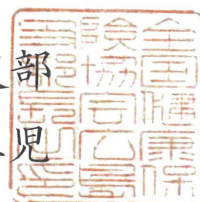 部
児
全国健康保
険協会広島
支部長之印